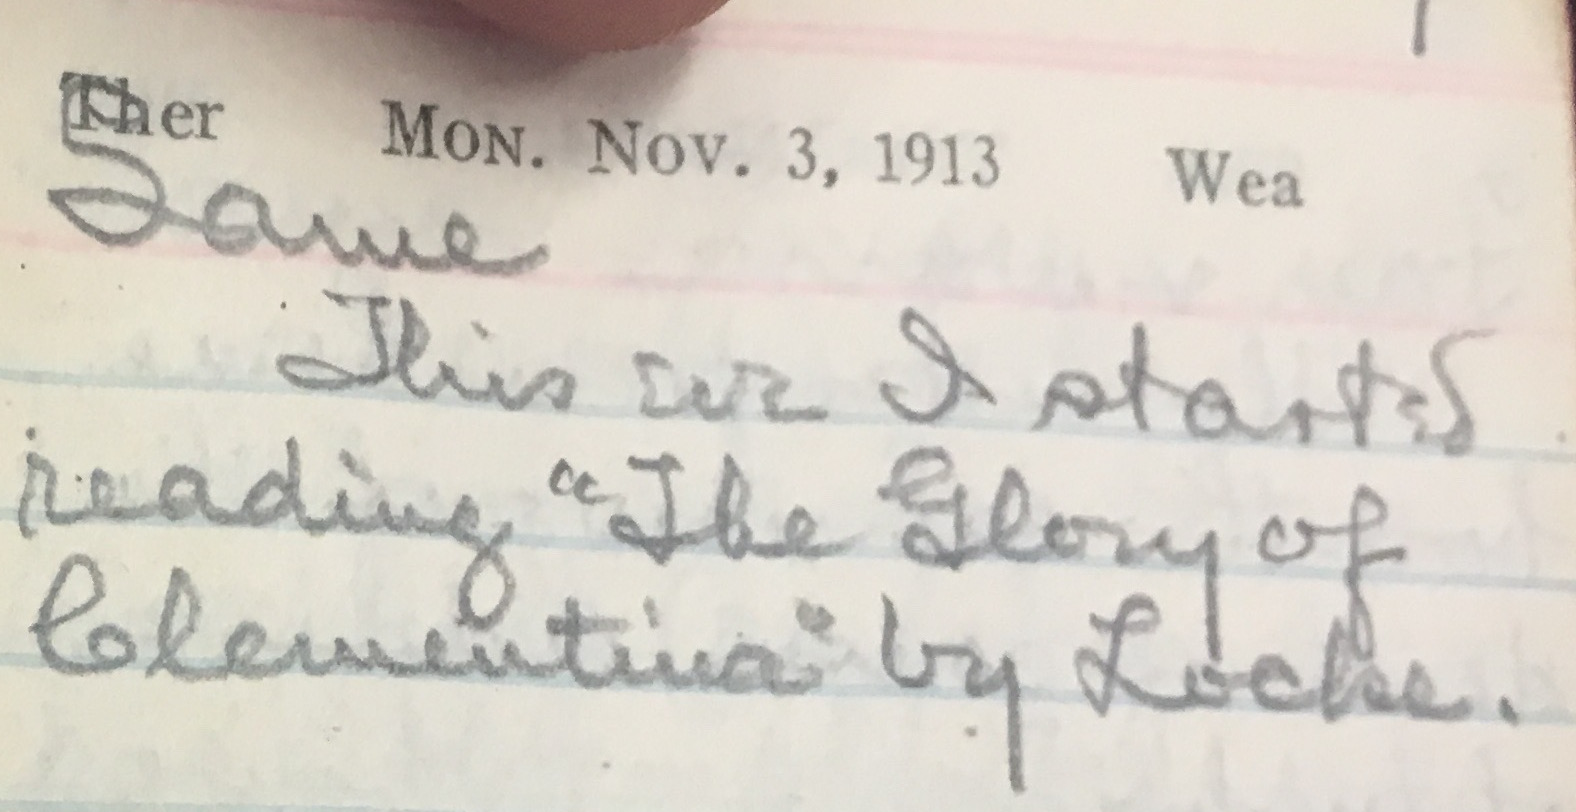 Ther Mon. Nov. 3, 1913 Wea
Same
This eve I started
reading "The Glory of
Clementina" by Locke.